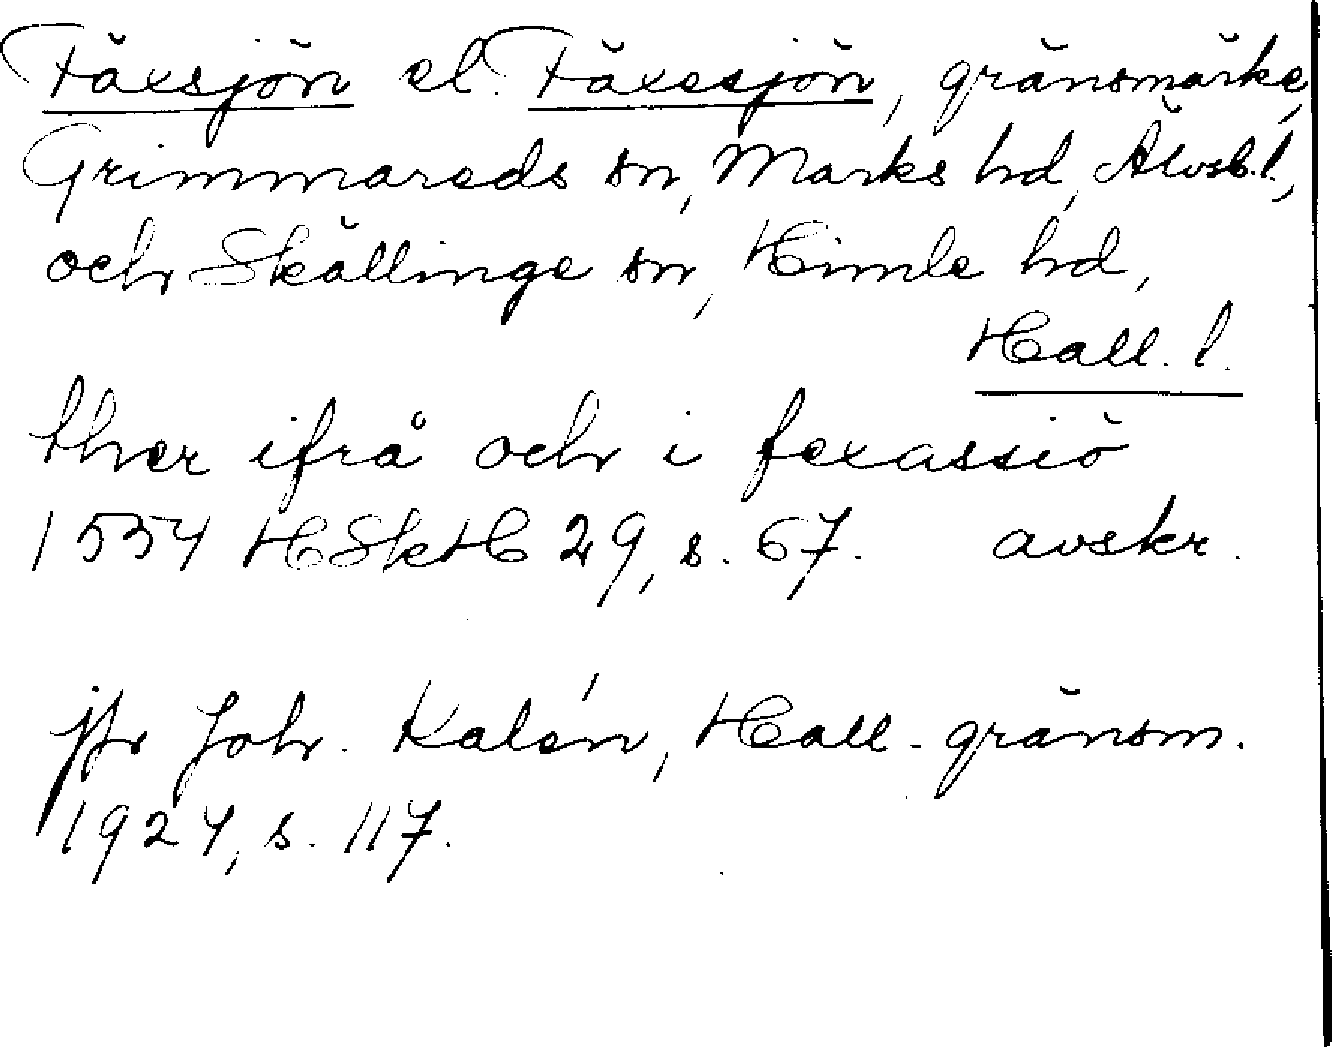 Fäxsjön el. Fäxesjön, gränsmärke,
Grimmareds sn, Marks hd, Älvsb. l.,
och Skällinge sn, Himle hd,
Hall. l.
ther ifrå och i fexassiö
1554 HSkH 29, s. 67. avskr.
jfr Joh. Kalén, Hall. gränsm.
1924, s. 117.